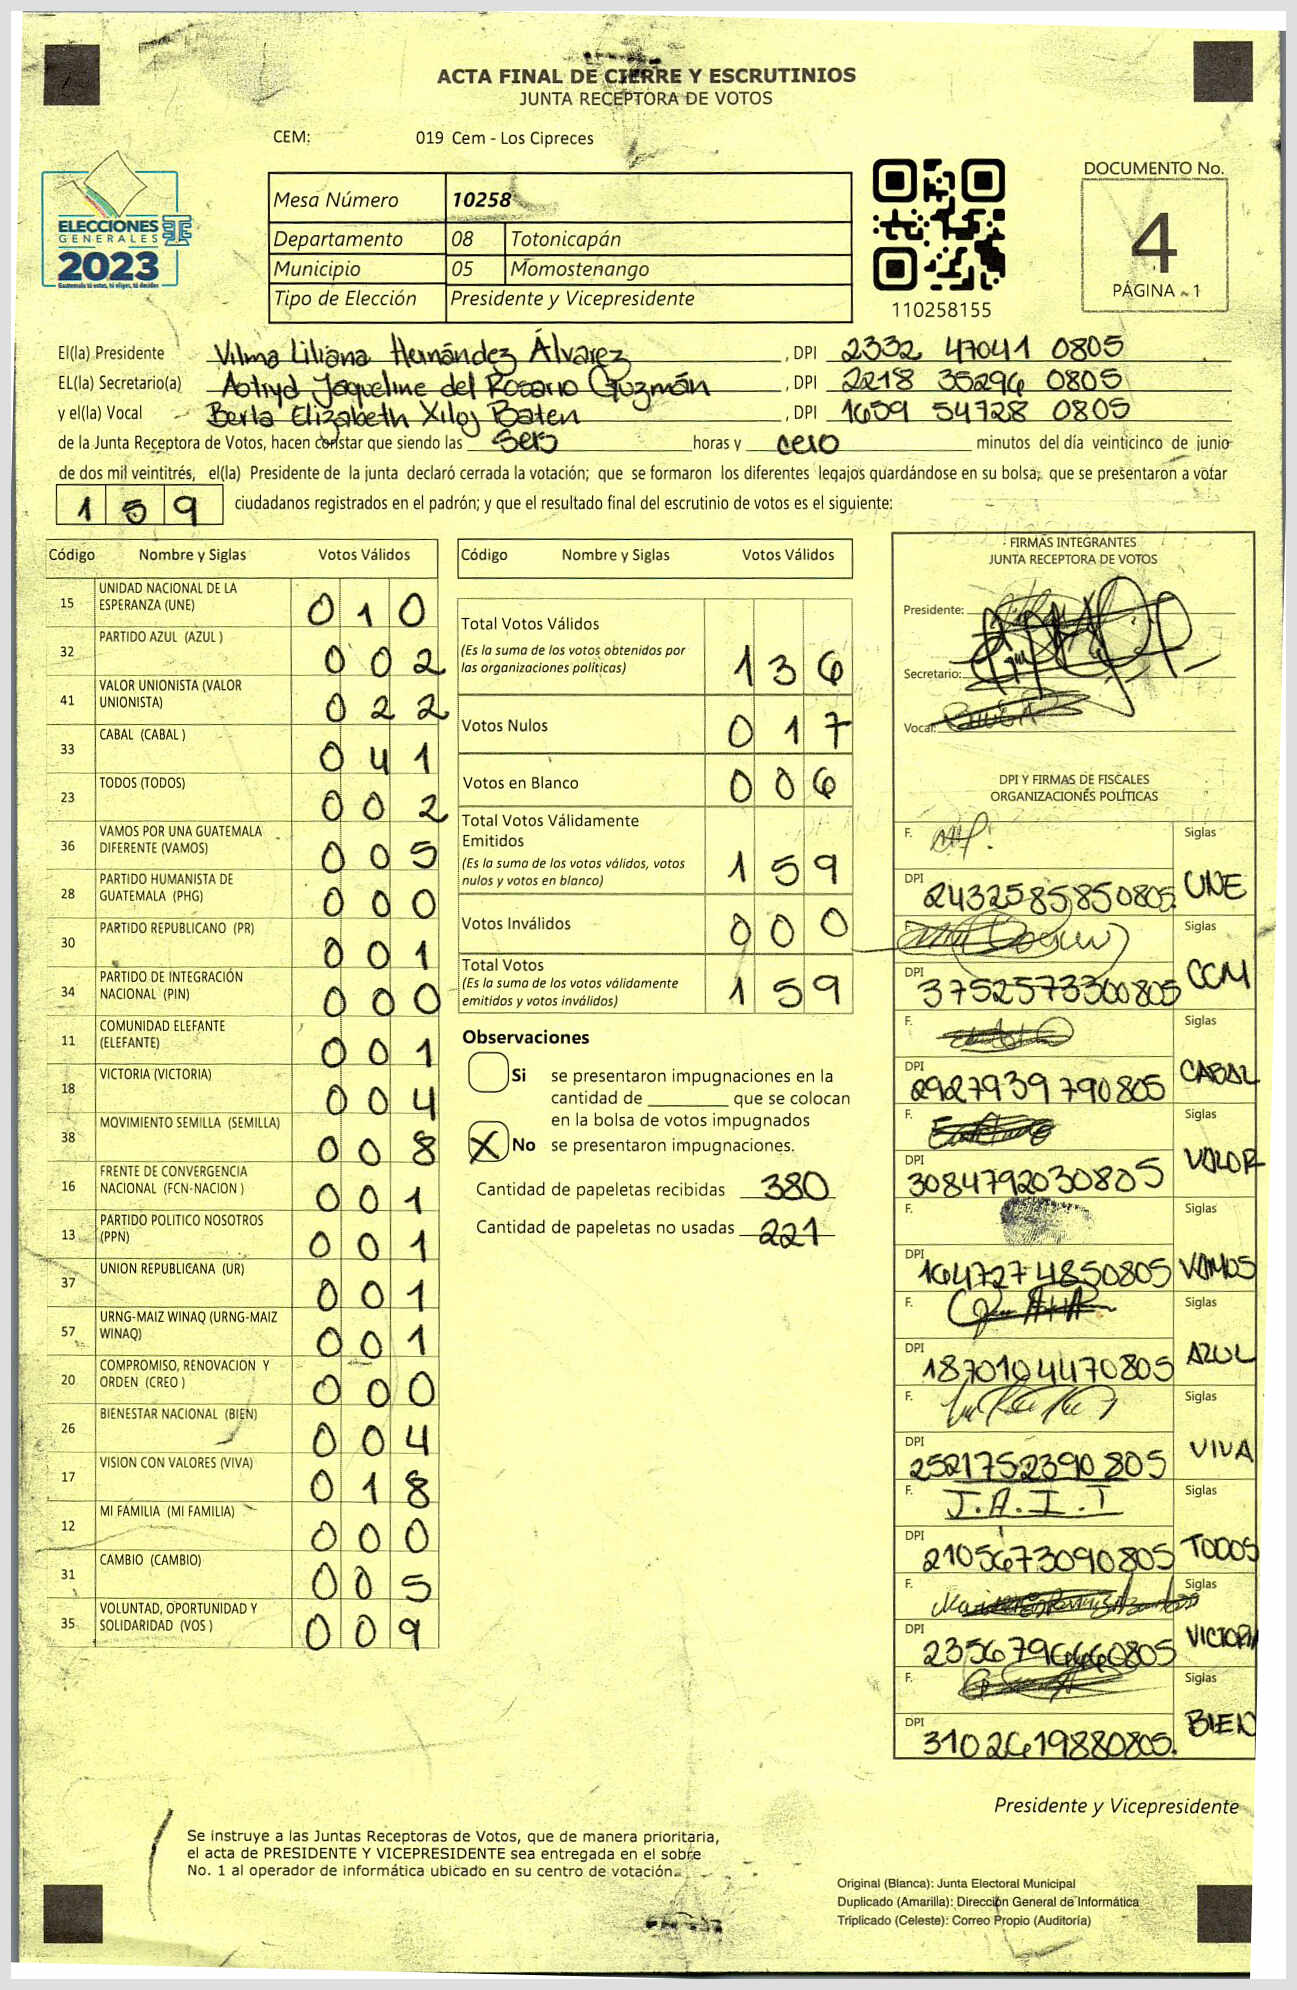 ACTA FINAL DE CIERRE Y ESCRUTINIOS
JUNTA RECEPTORA DE VOTOS
CEM: 019 Cem - Los Cipreces
ELECCIONES
GENERALES
2023
Guatemala tú votas, tú eliges, tú decides
Mesa Número 10258
Departamento 08 Totonicapán
Municipio 05 Momostenango
Tipo de Elección Presidente y Vicepresidente
110258155
DOCUMENTO No.
4
PÁGINA - 1
El(la) Presidente Vilma Liliana Hernández Álvarez, DPI 2332 47041 0805
EL(la) Secretario(a) Astryd Jaqueline del Rosario Guzmán, DPI 2218 35296 0805
y el(la) Vocal Berta Elizabeth Xiloj Baten, DPI 1659 54728 0805
de la Junta Receptora de Votos, hacen constar que siendo las seis horas y cero minutos del día veinticinco de junio
de dos mil veintitrés, el(la) Presidente de la junta declaró cerrada la votación; que se formaron los diferentes legajos guardándose en su bolsa; que se presentaron a votar
159 ciudadanos registrados en el padrón; y que el resultado final del escrutinio de votos es el siguiente:
Código Nombre y Siglas Votos Válidos
15 UNIDAD NACIONAL DE LA ESPERANZA (UNE) 010
32 PARTIDO AZUL (AZUL ) 002
41 VALOR UNIONISTA (VALOR UNIONISTA) 022
33 CABAL (CABAL ) 041
23 TODOS (TODOS) 002
36 VAMOS POR UNA GUATEMALA DIFERENTE (VAMOS) 005
28 PARTIDO HUMANISTA DE GUATEMALA (PHG) 000
30 PARTIDO REPUBLICANO (PR) 001
34 PARTIDO DE INTEGRACIÓN NACIONAL (PIN) 000
11 COMUNIDAD ELEFANTE (ELEFANTE) 001
18 VICTORIA (VICTORIA) 004
38 MOVIMIENTO SEMILLA (SEMILLA) 008
16 FRENTE DE CONVERGENCIA NACIONAL (FCN-NACION ) 001
13 PARTIDO POLITICO NOSOTROS (PPN) 001
37 UNION REPUBLICANA (UR) 001
57 URNG-MAIZ WINAQ (URNG-MAIZ WINAQ) 001
20 COMPROMISO, RENOVACION Y ORDEN (CREO ) 000
26 BIENESTAR NACIONAL (BIEN) 004
17 VISION CON VALORES (VIVA) 018
12 MI FAMILIA (MI FAMILIA) 000
31 CAMBIO (CAMBIO) 005
35 VOLUNTAD, OPORTUNIDAD Y SOLIDARIDAD (VOS ) 009
Código Nombre y Siglas Votos Válidos
Total Votos Válidos 136
(Es la suma de los votos obtenidos por
las organizaciones políticas)
Votos Nulos 017
Votos en Blanco 006
Total Votos Válidamente
Emitidos 159
(Es la suma de los votos válidos, votos
nulos y votos en blanco)
Votos Inválidos 000
Total Votos 159
(Es la suma de los votos válidamente
emitidos y votos inválidos)
Observaciones
Si se presentaron impugnaciones en la
cantidad de ________ que se colocan
en la bolsa de votos impugnados
X No se presentaron impugnaciones.
Cantidad de papeletas recibidas 380
Cantidad de papeletas no usadas 221
FIRMAS INTEGRANTES
JUNTA RECEPTORA DE VOTOS
Presidente:
Secretario:
Vocal:
DPI Y FIRMAS DE FISCALES
ORGANIZACIONES POLÍTICAS
F. Siglas
DPI 2432585850805 UNE
F. Siglas
DPI 3752573300805 CCM
F. Siglas
DPI 2927939790805 CABAL
F. Siglas
DPI 3084792030805 VALOR
F. Siglas
DPI 1647274850805 VAMOS
F. Siglas
DPI 1870104470805 AZUL
F. Siglas
DPI 2521752390805 VIVA
F. J.A.I.T Siglas
DPI 2105673090805 TODOS
F. Siglas
DPI 2356796660805 VICTORIA
F. Siglas
DPI 3102619880805. BIEN
Presidente y Vicepresidente
Se instruye a las Juntas Receptoras de Votos, que de manera prioritaria,
el acta de PRESIDENTE Y VICEPRESIDENTE sea entregada en el sobre
No. 1 al operador de informática ubicado en su centro de votación.
Original (Blanca): Junta Electoral Municipal
Duplicado (Amarilla): Dirección General de Informática
Triplicado (Celeste): Correo Propio (Auditoría)